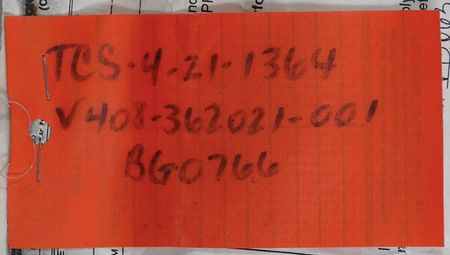 TCS-4-21-1364
V408-362021-001
BG0766